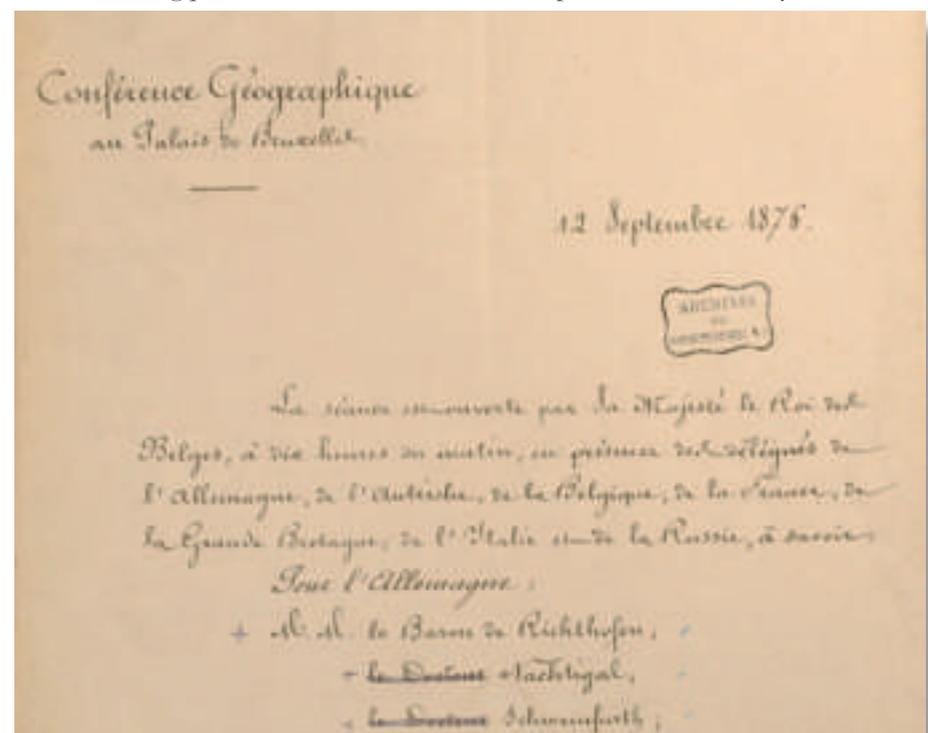 Conférence Géographique
au Palais de Bruxelles
12 Septembre 1876.
ARCHIVES
La séance est ouverte par Sa Majesté le Roi des
Belges, à dix heures du matin, en présence des délégués de
l'Allemagne, de l'Autriche, de la Belgique, de la France, de
la Grande Bretagne, de l'Italie et de la Russie, à savoir:
Pour l'Allemagne:
M.M. le Baron de Richthofen,
le Docteur Nachtigal,
le Docteur Schweinfurth,